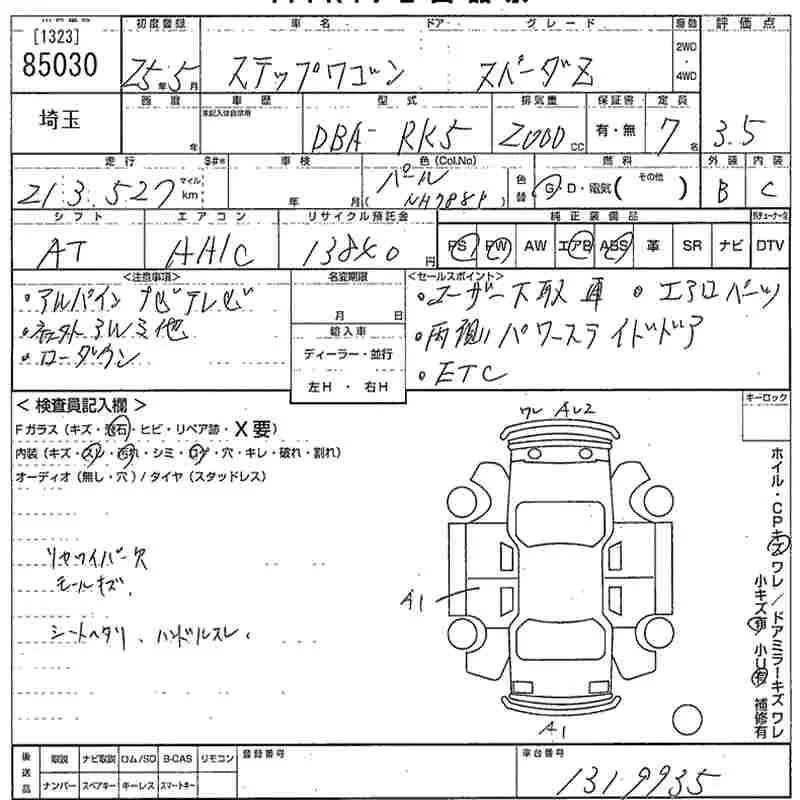 [1323]
85030
埼玉
初度登録 車名 ドア グレード 駆動 評価点
25年5月 ステップワゴン スパーダZ 2WD・4WD 3.5
車歴 型式 排気量 保証書 定員
未記入は自家用
年 DBA- RK5 2000cc 有・無 7名
走行 車検 色(Col.No) 燃料 外装 内装
213,527 マイル km 年 月 (パール NH788P) 色替 G・D・電気(その他) B C
シフト エアコン リサイクル預託金 純正装備品
AT AAC 13840円 PS PW AW エアB ABS 革 SR ナビ DTV
<注意事項> 名変期限 <セールスポイント>
・アルパイン ナビテレビ
・社外アルミ他
・ローダウン
月 日
輸入車
ディーラー・並行
左H・右H
・ユーザー下取車 ・エアロパーツ
・両側パワースライドドア
・ETC
<検査員記入欄> キーロック
Fガラス(キズ・飛石・ヒビ・リペア跡・X要)
内装(キズ・スレ・汚れ・シミ・コゲ・穴・キレ・破れ・割れ)
オーディオ(無し・穴)/タイヤ(スタッドレス)
リヤワイパー欠
モールキズ.
シートヘタリ、ハンドルスレ.
ワレ A12
A1
A1
ホイル・CPキズワレ/ドアミラーキズワレ
小キズ有 小U有 補修有
後送品 取説 ナビ取説 ロム/SD B-CAS リモコン 登録番号 車台番号
ナンバー スペアキー キーレス スマートキー 1319935